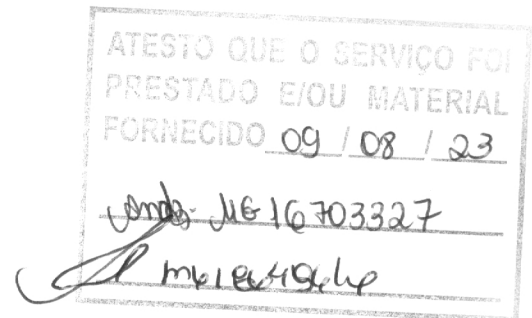 ATESTO QUE O SERVIÇO FOI
PRESTADO E/OU MATERIAL
FORNECIDO 09 / 08 / 23
MG 16703327